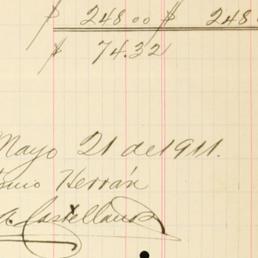 $ 248 00 $ 248
$ 74.32
Mayo 21 de 1911.
Herrán
Castellanos